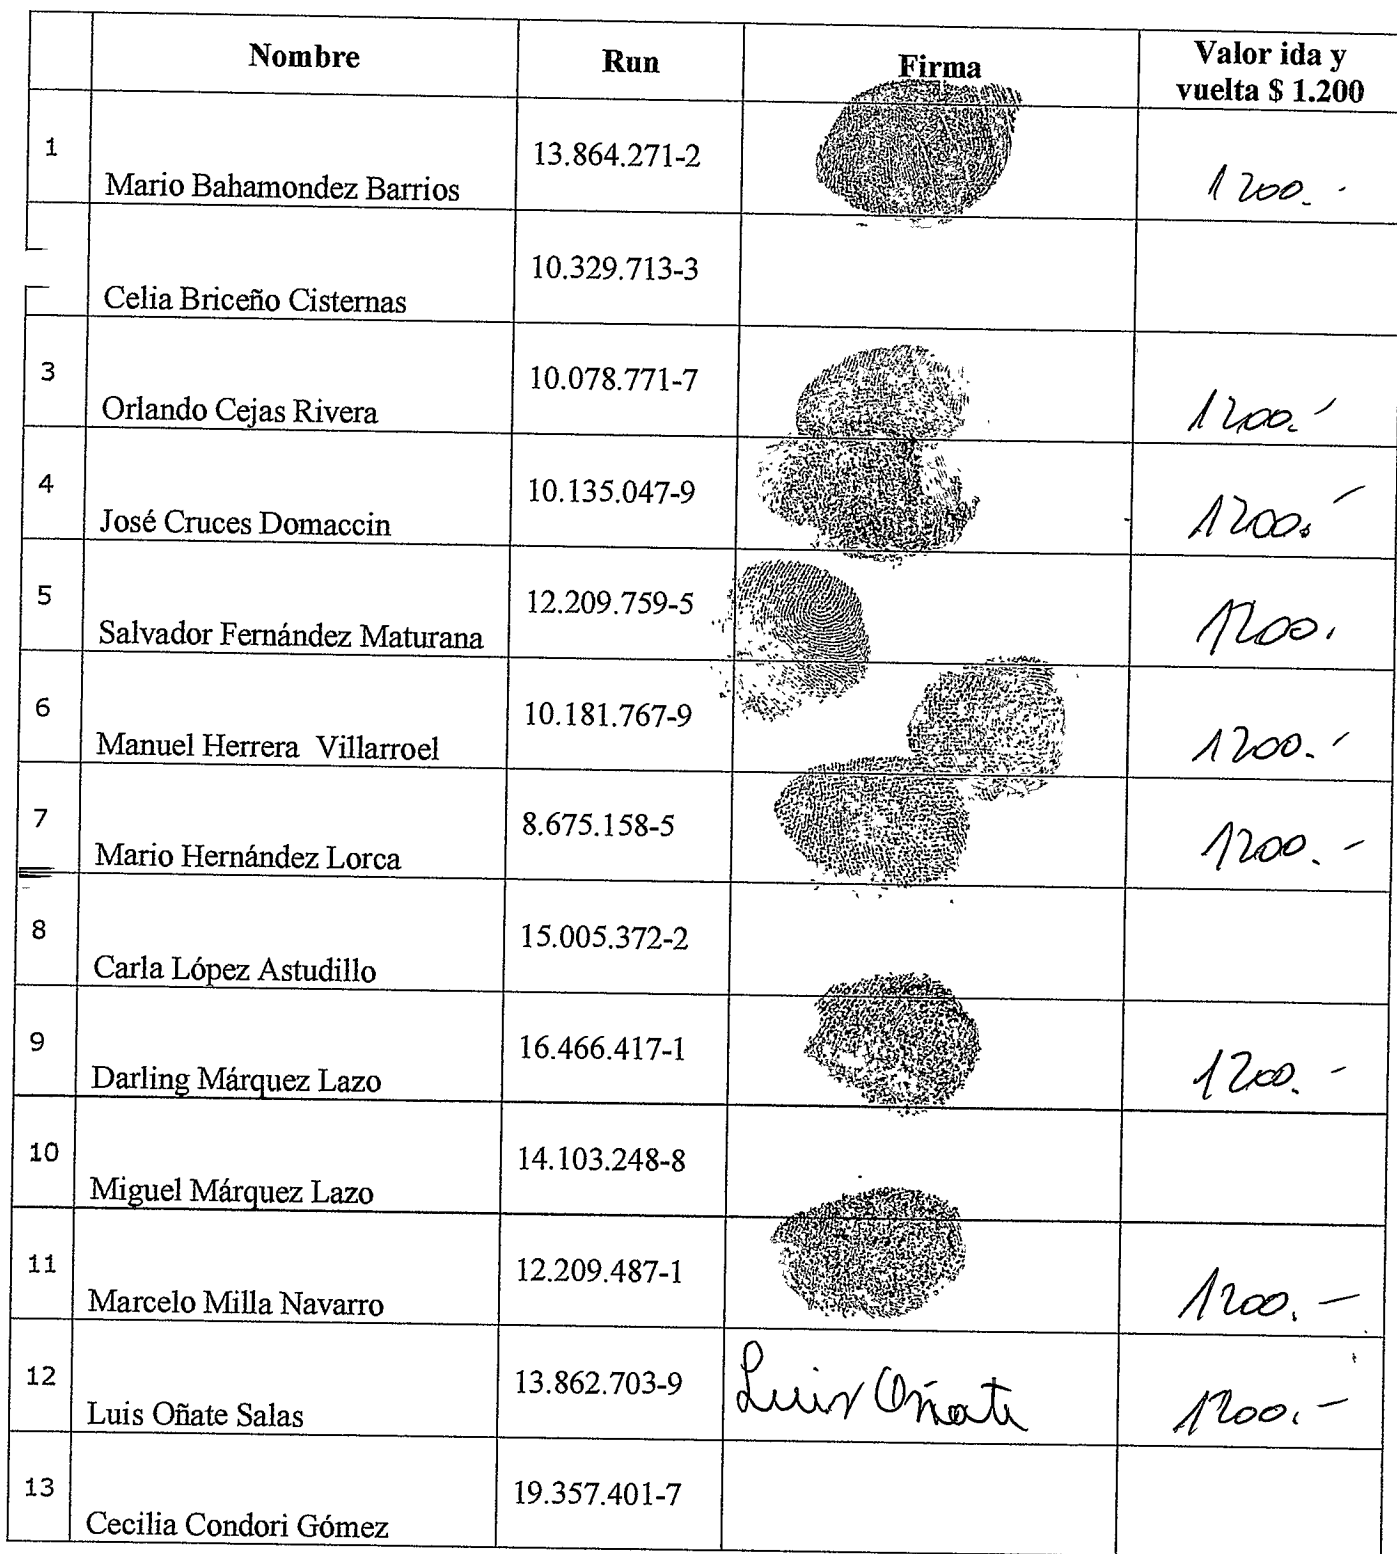 Nombre Run Firma Valor ida y
vuelta $ 1.200
1 Mario Bahamondez Barrios 13.864.271-2 1200.-
Celia Briceño Cisternas 10.329.713-3
3 Orlando Cejas Rivera 10.078.771-7 1200.-
4 José Cruces Domaccin 10.135.047-9 1200.-
5 Salvador Fernández Maturana 12.209.759-5 1200.
6 Manuel Herrera Villarroel 10.181.767-9 1200.-
7 Mario Hernández Lorca 8.675.158-5 1200.-
8 Carla López Astudillo 15.005.372-2
9 Darling Márquez Lazo 16.466.417-1 1200.-
10 Miguel Márquez Lazo 14.103.248-8
11 Marcelo Milla Navarro 12.209.487-1 1200.-
12 Luis Oñate Salas 13.862.703-9 Luis Oñate 1200.-
13 Cecilia Condori Gómez 19.357.401-7